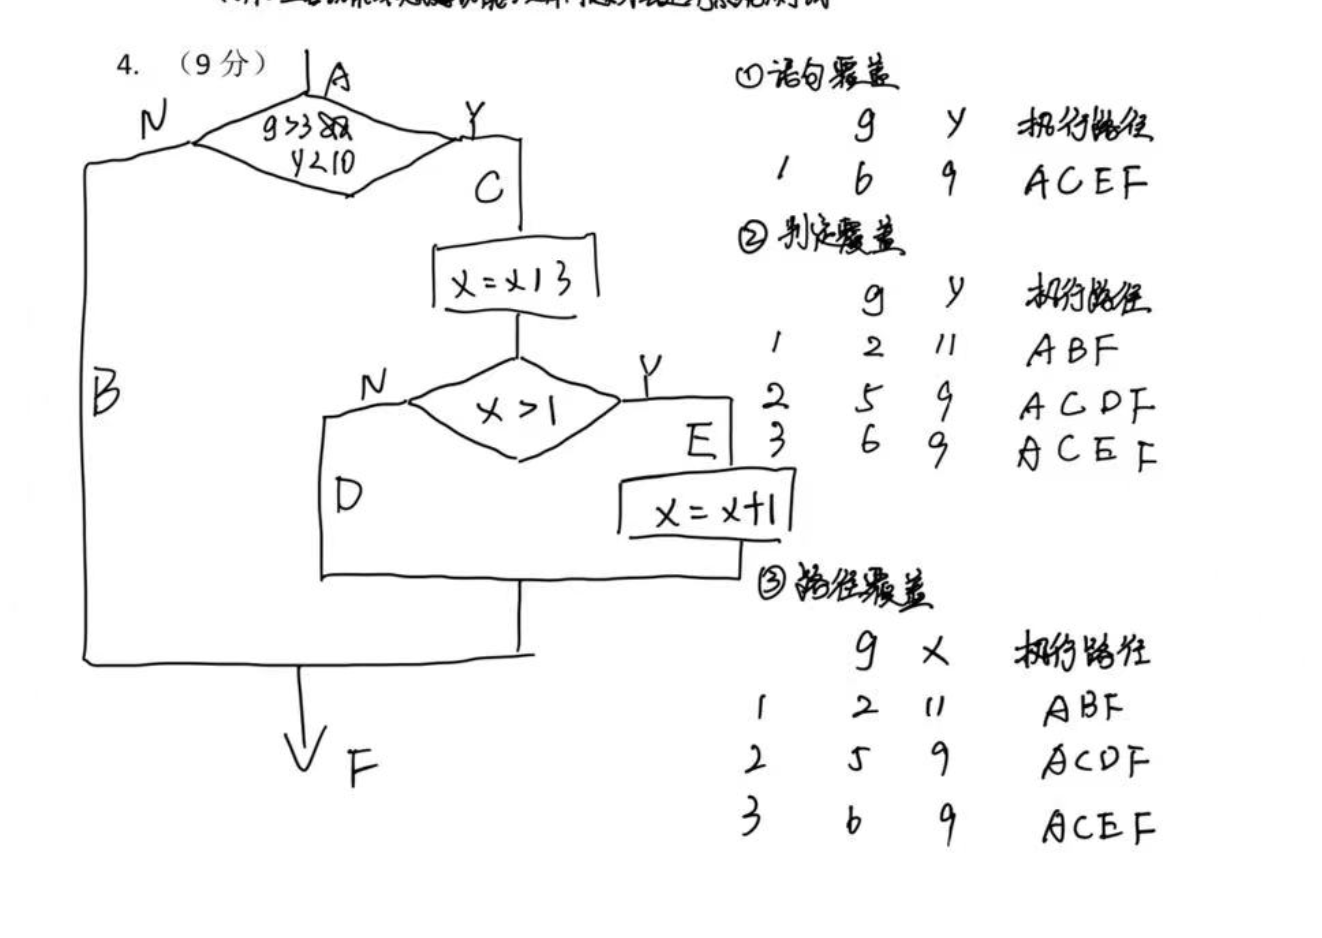 4. （9分）
A
N
Y
g>3 &&
y<10
C
x=x13
B
N
Y
x>1
E
D
x=x+1
F
①语句覆盖
g y 执行路径
1 6 9 ACEF
②判定覆盖
g y 执行路径
1 2 11 ABF
2 5 9 ACDF
3 6 9 ACEF
③路径覆盖
g x 执行路径
1 2 11 ABF
2 5 9 ACDF
3 6 9 ACEF